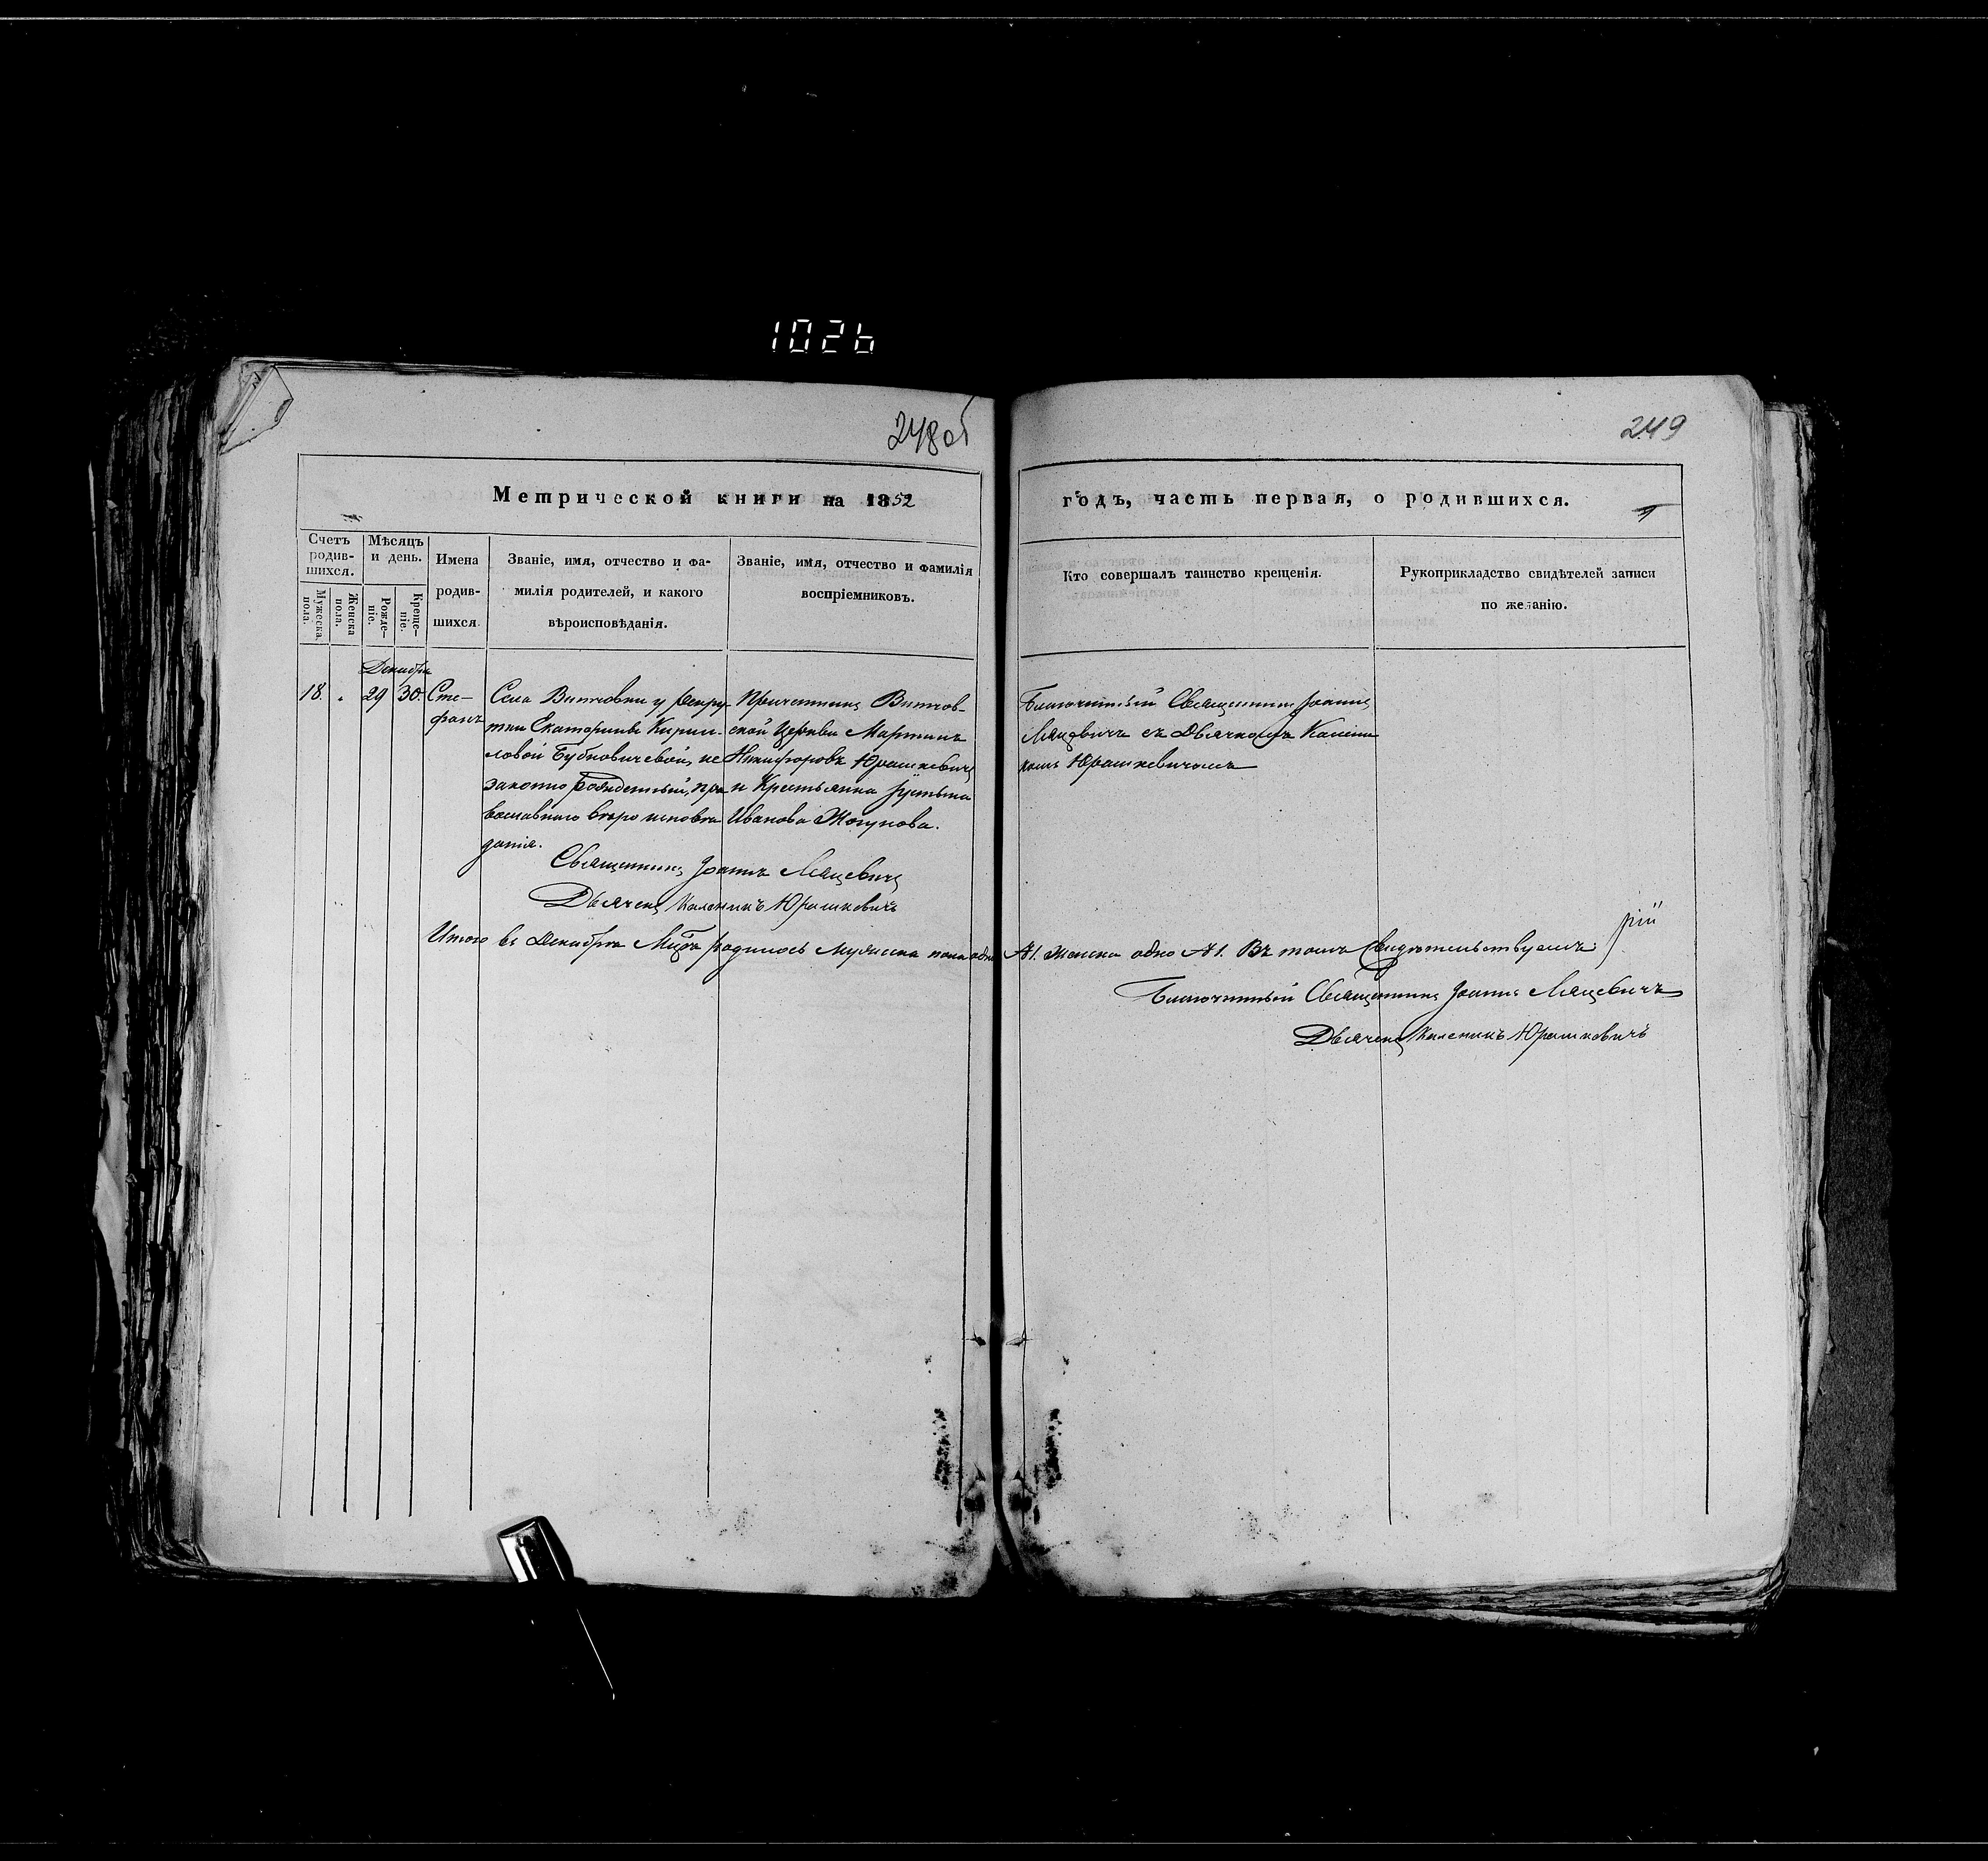 1026
248об
249
Метрической книги на 1852
годъ, часть первая, о родившихся.
Счетъ родив-шихся.
Мѣсяцъ и день.
Имена родив-шихся.
Званіе, имя, отчество и фа-
милія родителей, и какого
вѣроисповѣданія.
Званіе, имя, отчество и фамилія
воспріемниковъ.
Кто совершалъ таинство крещенія.
Рукоприкладство свидѣтелей записи
по желанію.
Мужеска пола.
Женска пола.
Рожде-ніе.
Креще-ніе.
Декабрь
18. 29 30. Сте-
фанъ
Села Витчовки у рекру-
тки Екатерины Кирил-
ловой Бубновичевой, не
законно рожденный, пра
вославнаго вѣроисповѣ
данія.
Причетникъ Витчов-
ской Церкви Мартинъ
Никифоровъ Юрашкевичъ
и Крестьянка Іустина
Иванова Жогунова.
Благочинный Священникъ Іоаннъ
Мацевичъ съ Дьячкомъ Калени
комъ Юрашкевичемъ
Священникъ Іоаннъ Мацевичъ
Дьячекъ Каленикъ Юрашкевичъ
Итого въ Декабрѣ Мцѣ родилось мужеска пола одно
№1. женска одно №1. Въ томъ свидѣтельствуемъ:
Благочинный Священникъ Іоаннъ Мацевичъ
Дьячекъ Каленикъ Юрашкевичъ